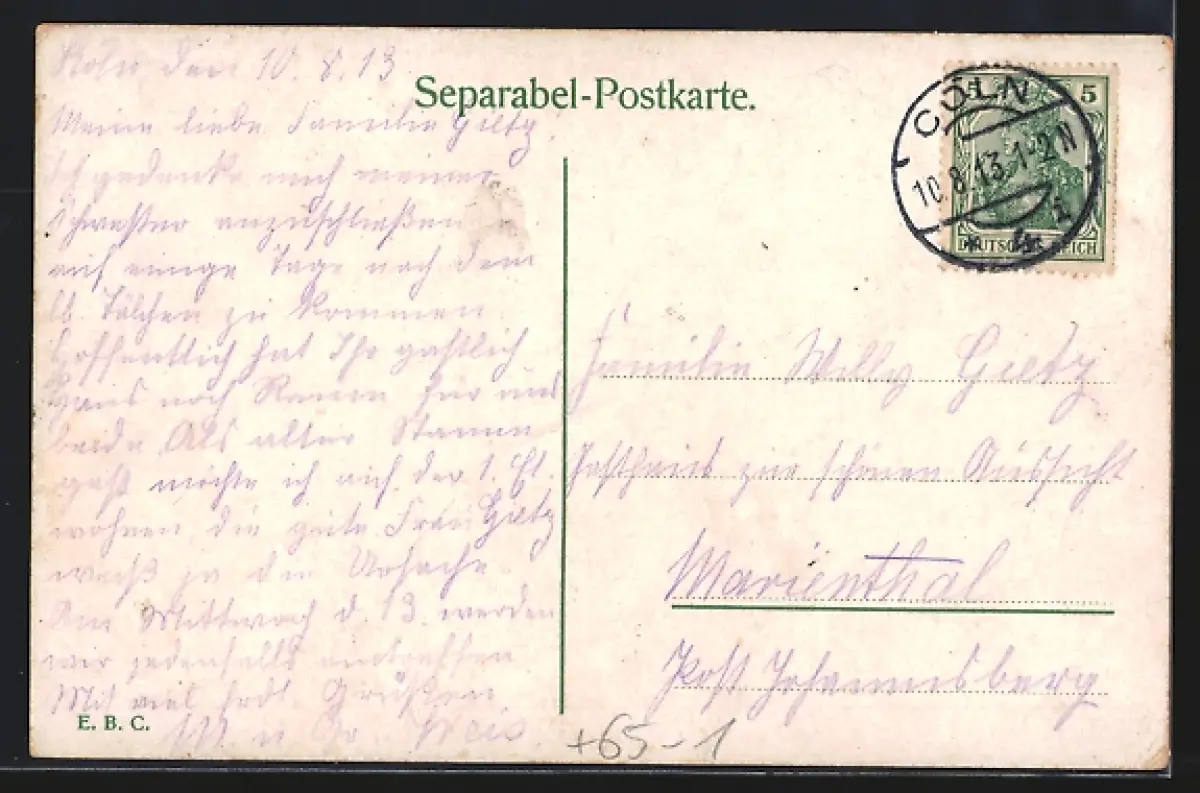 Köln den 10.8.13.
Separabel-Postkarte.
Meine liebe Familie Gietz!
Ich gedenke mich meiner
Schwester anzuschließen u.
auf einige Tage nach dem
lb. Tälchen zu kommen.
Hoffentlich hat Ihr gastlich
Haus noch Raum für uns
beide. Als alter Stamm-
gast möchte ich auf der 1. Et.
wohnen, die gute Frau Gietz
weiß ja die Ursache.
Am Mittwoch d. 13. werden
wir jedenfalls eintreffen.
Mit viel frdl. Grüßen
E. B. C.
CÖLN
10.8.13.1-2N
5
DEUTSCHES REICH
Familie Willy Gietz
Gasthaus zur schönen Aussicht
Marienthal
Post Johannisberg
+65-1